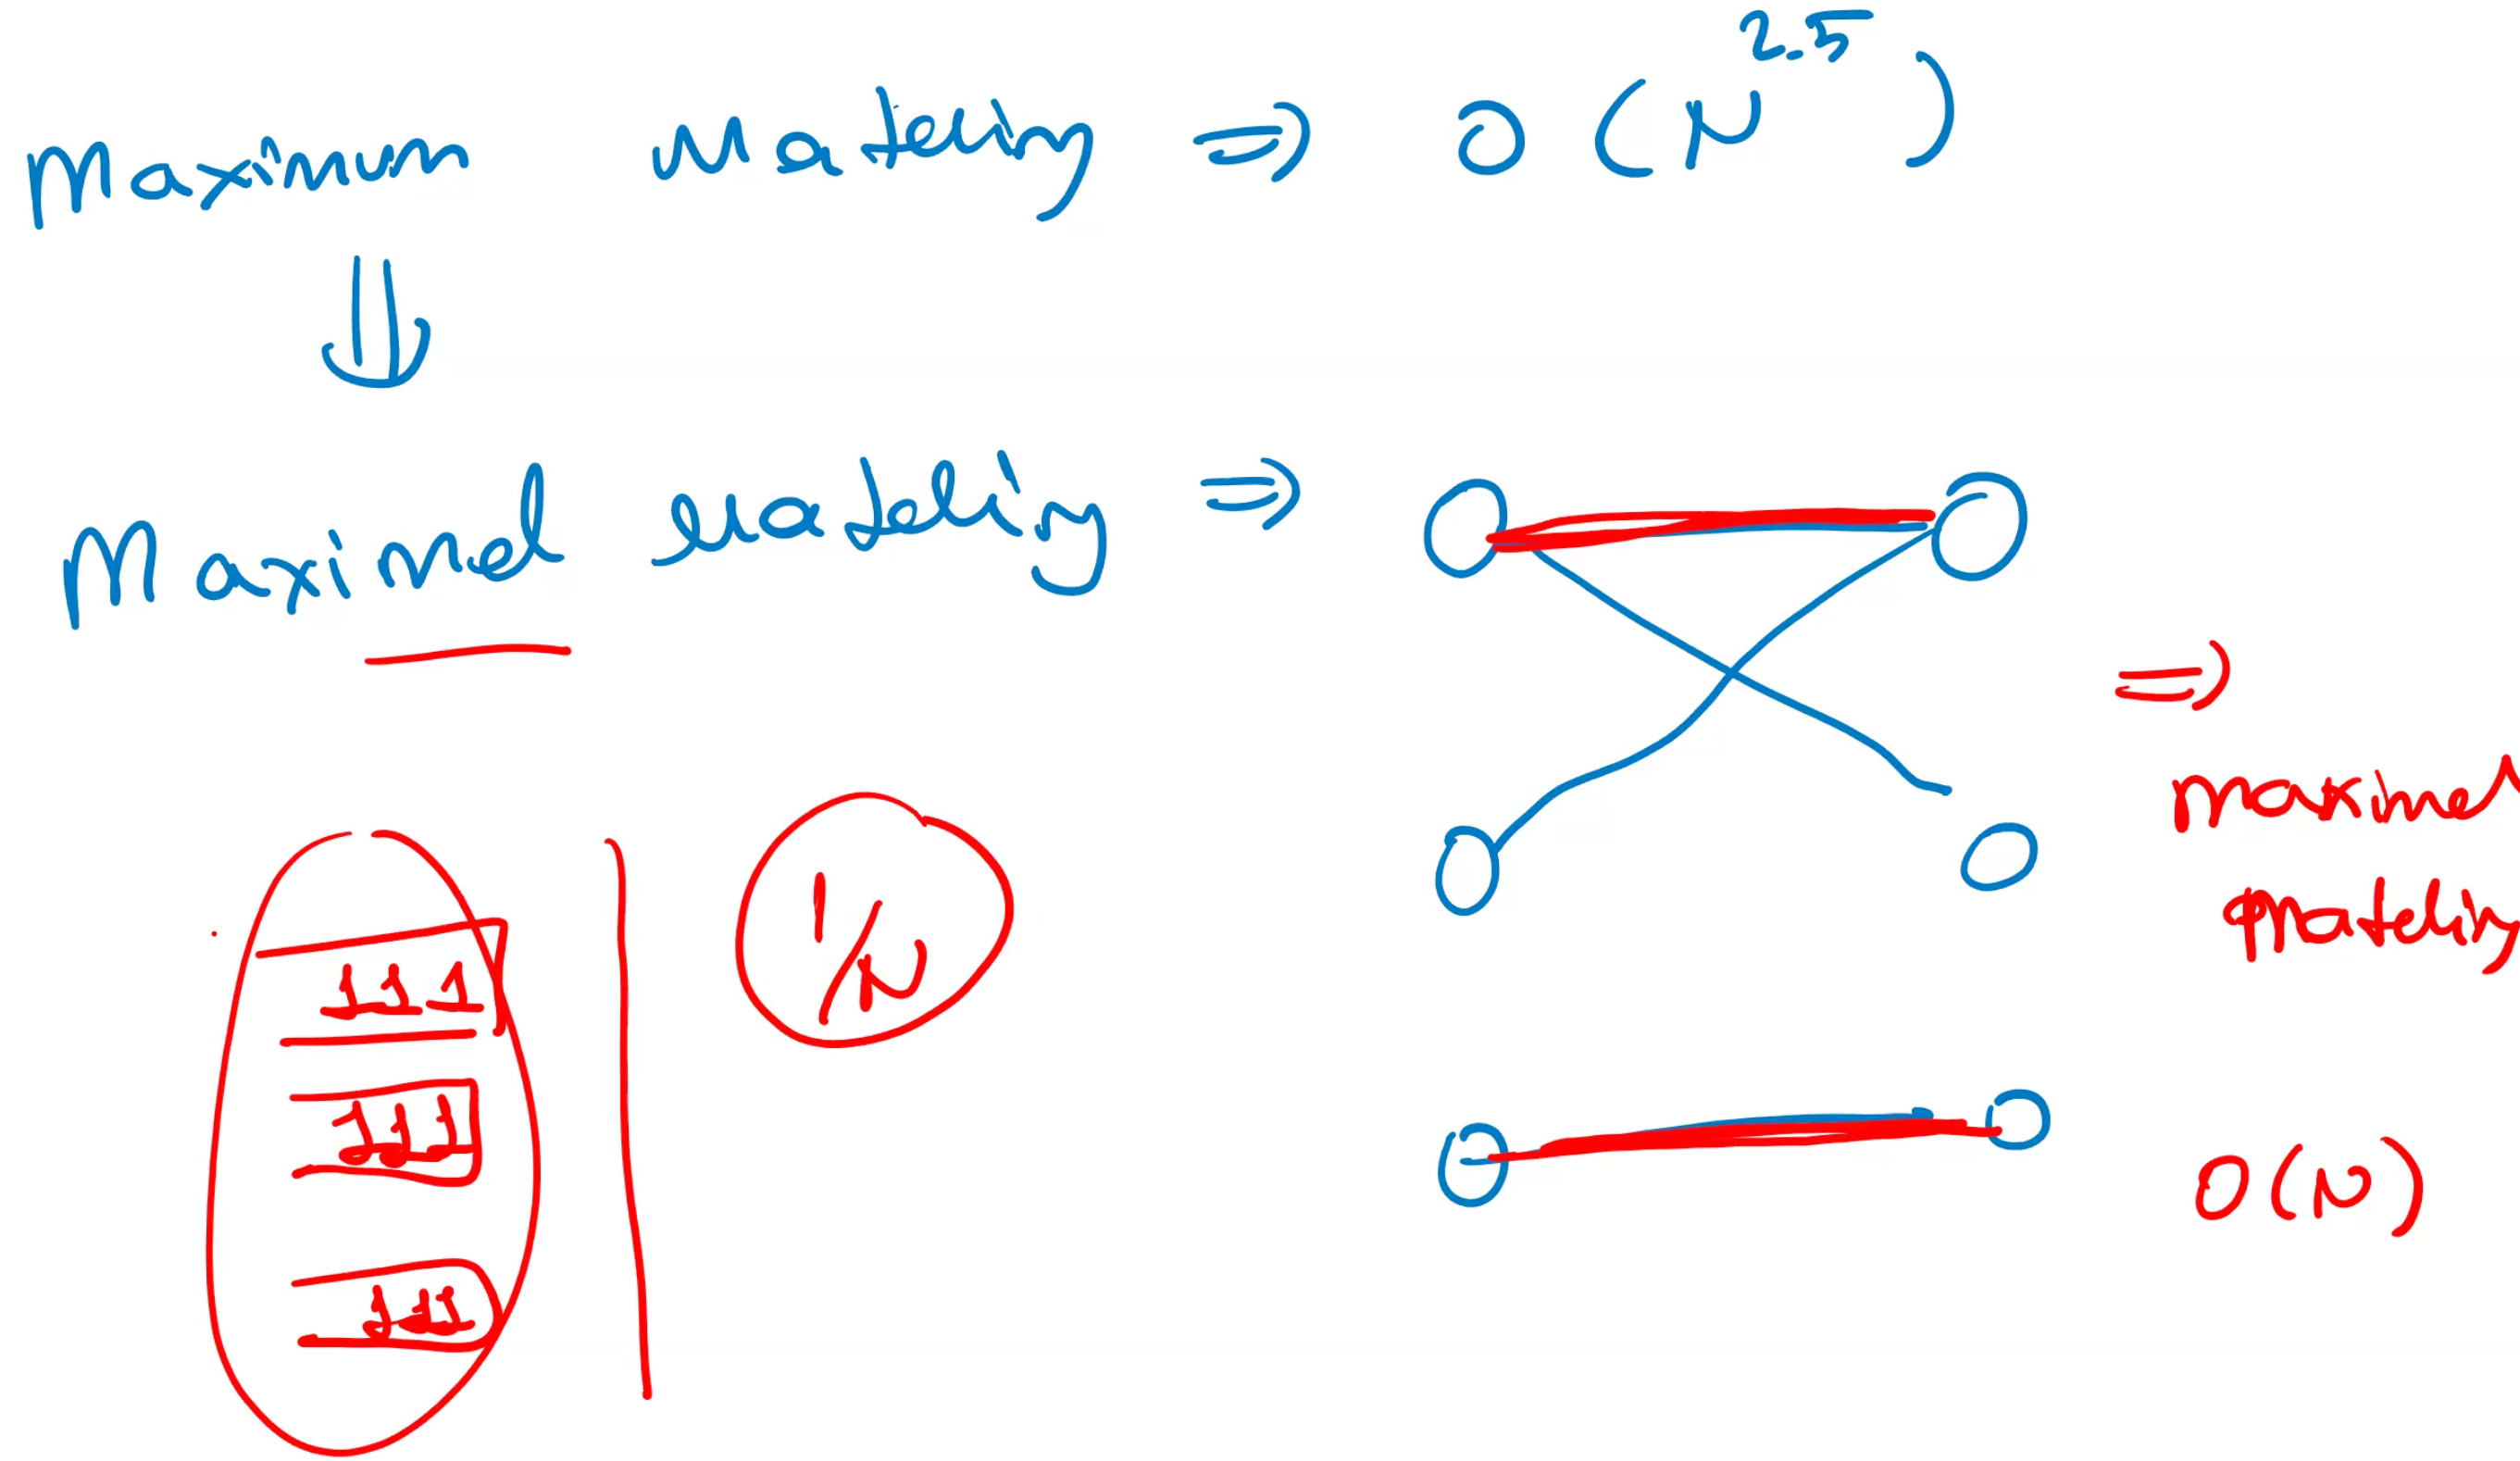 Maximum Matching ⇒ O(N^2.5)
⇓
Maximal Matching ⇒
⇒
maximal
matching
1 1 1
1/N
1 1 1
O(N)
1 1 1